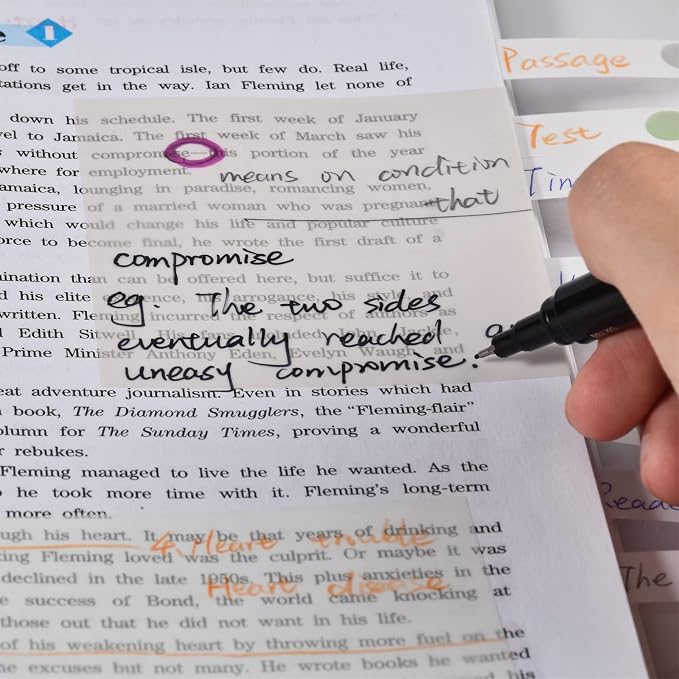 e 1
off to some tropical isle, but few do. Real life,
tations get in the way. Ian Fleming let none of
down his schedule. The first week of January
vel to Jamaica. The first week of March saw his
s without compromise—this portion of the year
where for employment.
means on condition
amaica, lounging in paradise, romancing women,
pressure of a married woman who was pregnant
that
which would change his life and popular culture
orce to become final, he wrote the first draft of a
compromise
ination than can be offered here, but suffice it to
d his elite his arrogance, his style and
eg. The two sides
written. Fleming incurred the respect of authors as
d Edith Sitwell. His fans included John
eventually reached a
Prime Minister Anthony Eden, Evelyn Waugh, and
uneasy compromise.
eat adventure journalism. Even in stories which had
book, The Diamond Smugglers, the “Fleming-flair”
olumn for The Sunday Times, proving a wonderful
r rebukes.
Fleming managed to live the life he wanted. As the
he took more time with it. Fleming's long-term
more often.
ugh his heart. It may be that years of drinking and
4. Heart trouble
king Fleming loved was the culprit. Or maybe it was
declined in the late 1950s. This plus anxieties in the
Heart disease
e success of Bond, the world came knocking at
those out that he did not want in his life.
of his weakening heart by throwing more fuel on the
ne excuses but not many. He wrote books he wanted
his
Passage
Test
Tin
Reade
The